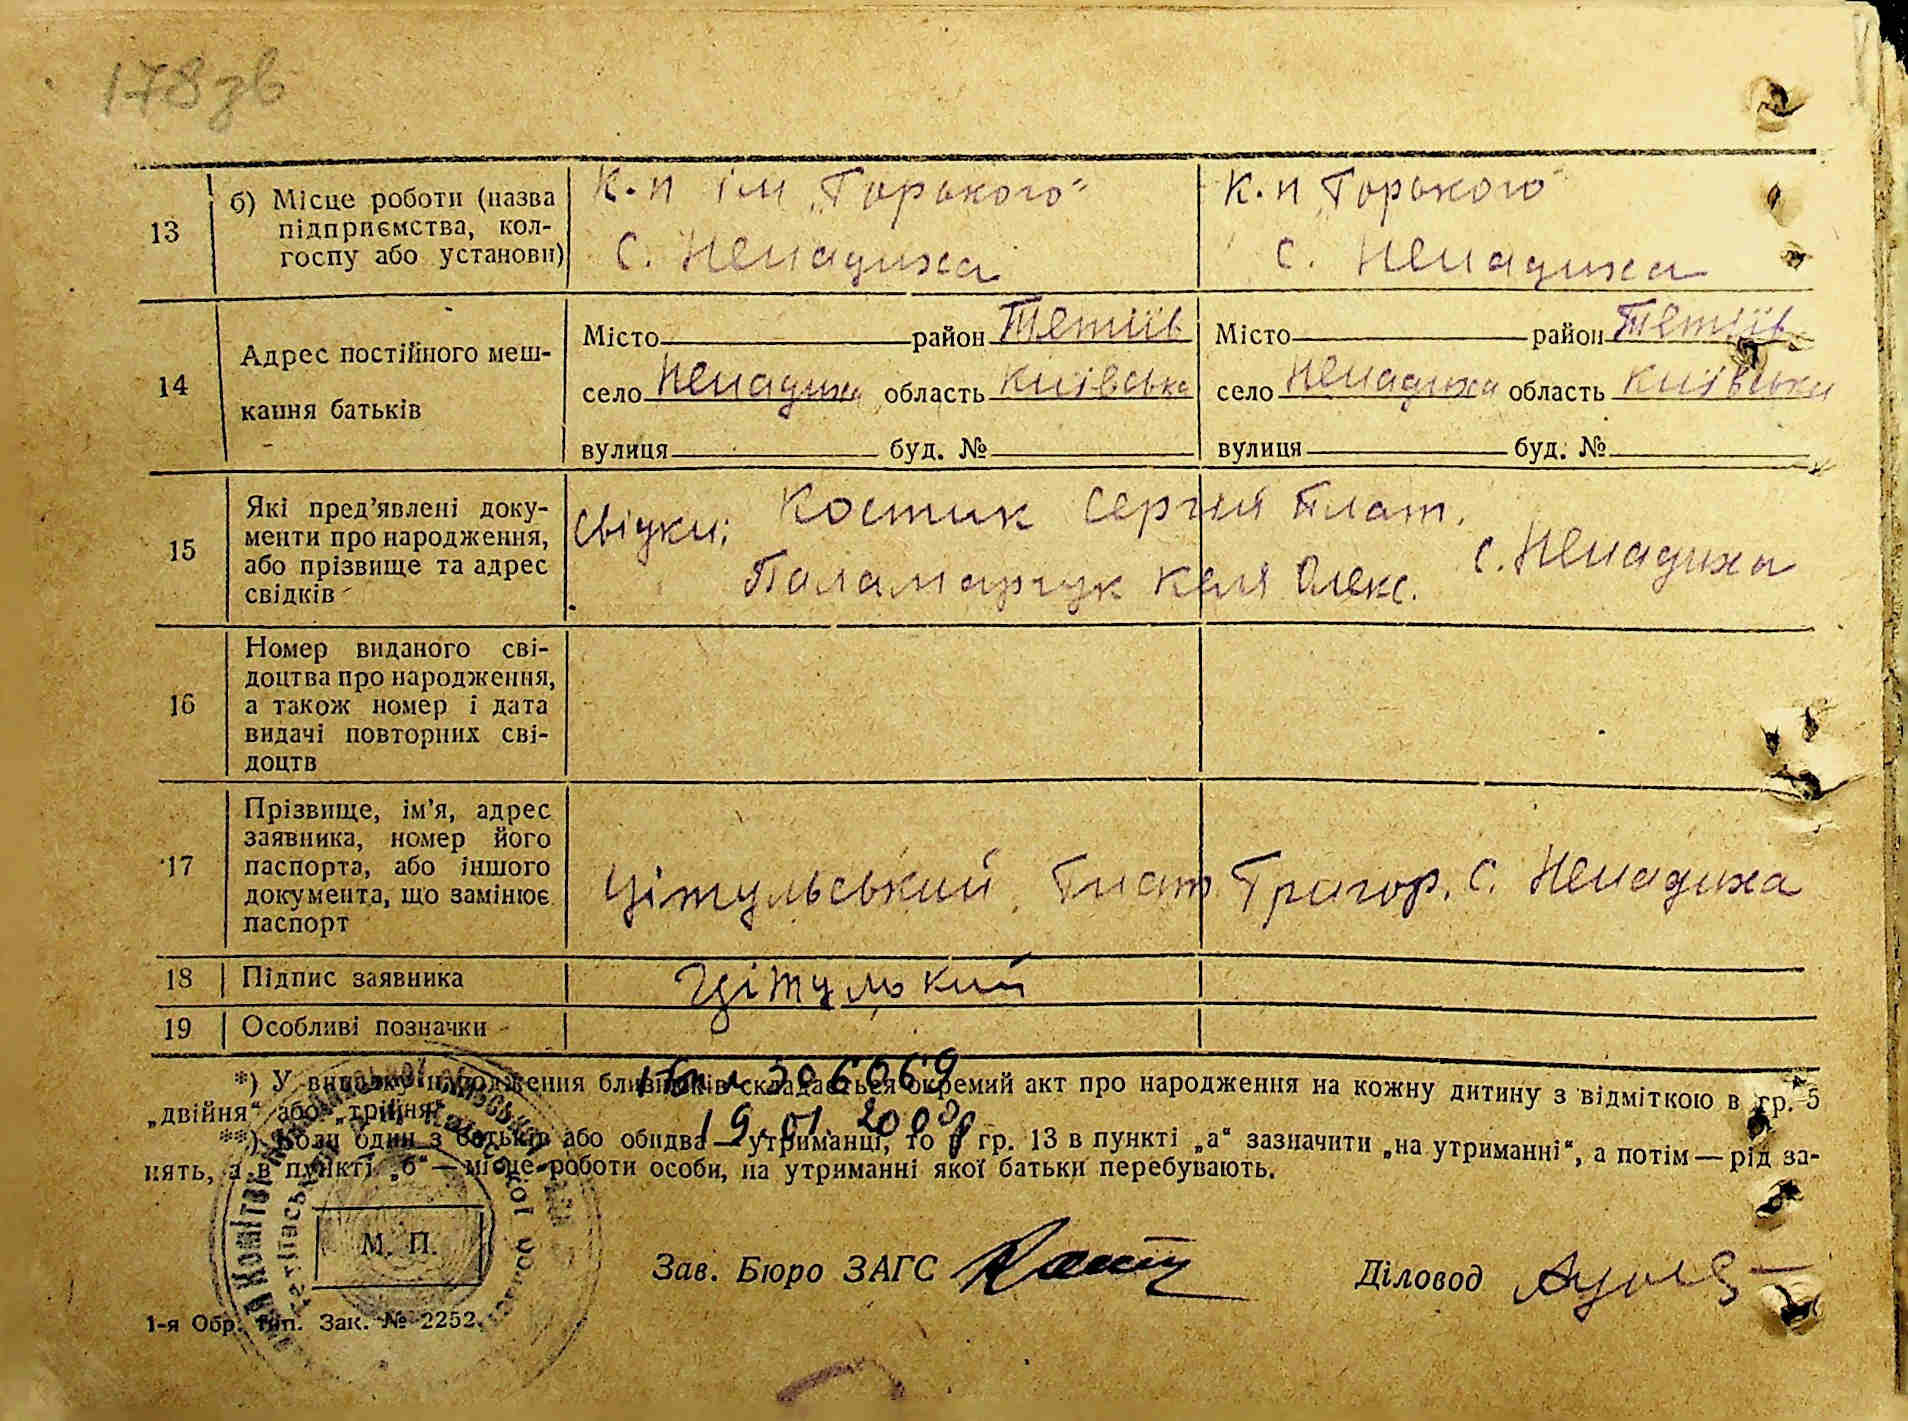 178зв
13 б) Місце роботи (назва підприємства, колгоспу або установи)
К-п ім „Горького“
с. Ненадиха
К-п „Горького“
с. Ненадиха
14 Адрес постійного мешкання батьків
Місто район Тетіїв
село Ненадиха область Київська
вулиця буд. №
Місто район Тетіїв
село Ненадиха область Київська
вулиця буд. №
15 Які пред'явлені документи про народження, або прізвище та адрес свідків
Свідки: Костик Сергій Плат.
Паламарчук Каля Олекс. с. Ненадиха
16 Номер виданого свідоцтва про народження, а також номер і дата видачі повторних свідоцтв
17 Прізвище, ім'я, адрес заявника, номер його паспорта, або іншого документа, що замінює паспорт
Цітульський Гнат Григор. с. Ненадиха
18 Підпис заявника
Цітульский
19 Особливі позначки
306069
19.01.2008р
*) У випадку народження близнюків складається окремий акт про народження на кожну дитину з відміткою в гр. 5
„двійня“ або „трійня“.
**) Коли один з батьків або обидва — утриманці, то в гр. 13 в пункті „а“ зазначити „на утриманні“, а потім — рід за-
нять, а в пункті „б“ — місце роботи особи, на утриманні якої батьки перебувають.
М. П.
Зав. Бюро ЗАГС
Діловод
1-я Обр. тип. Зак. № 2252.